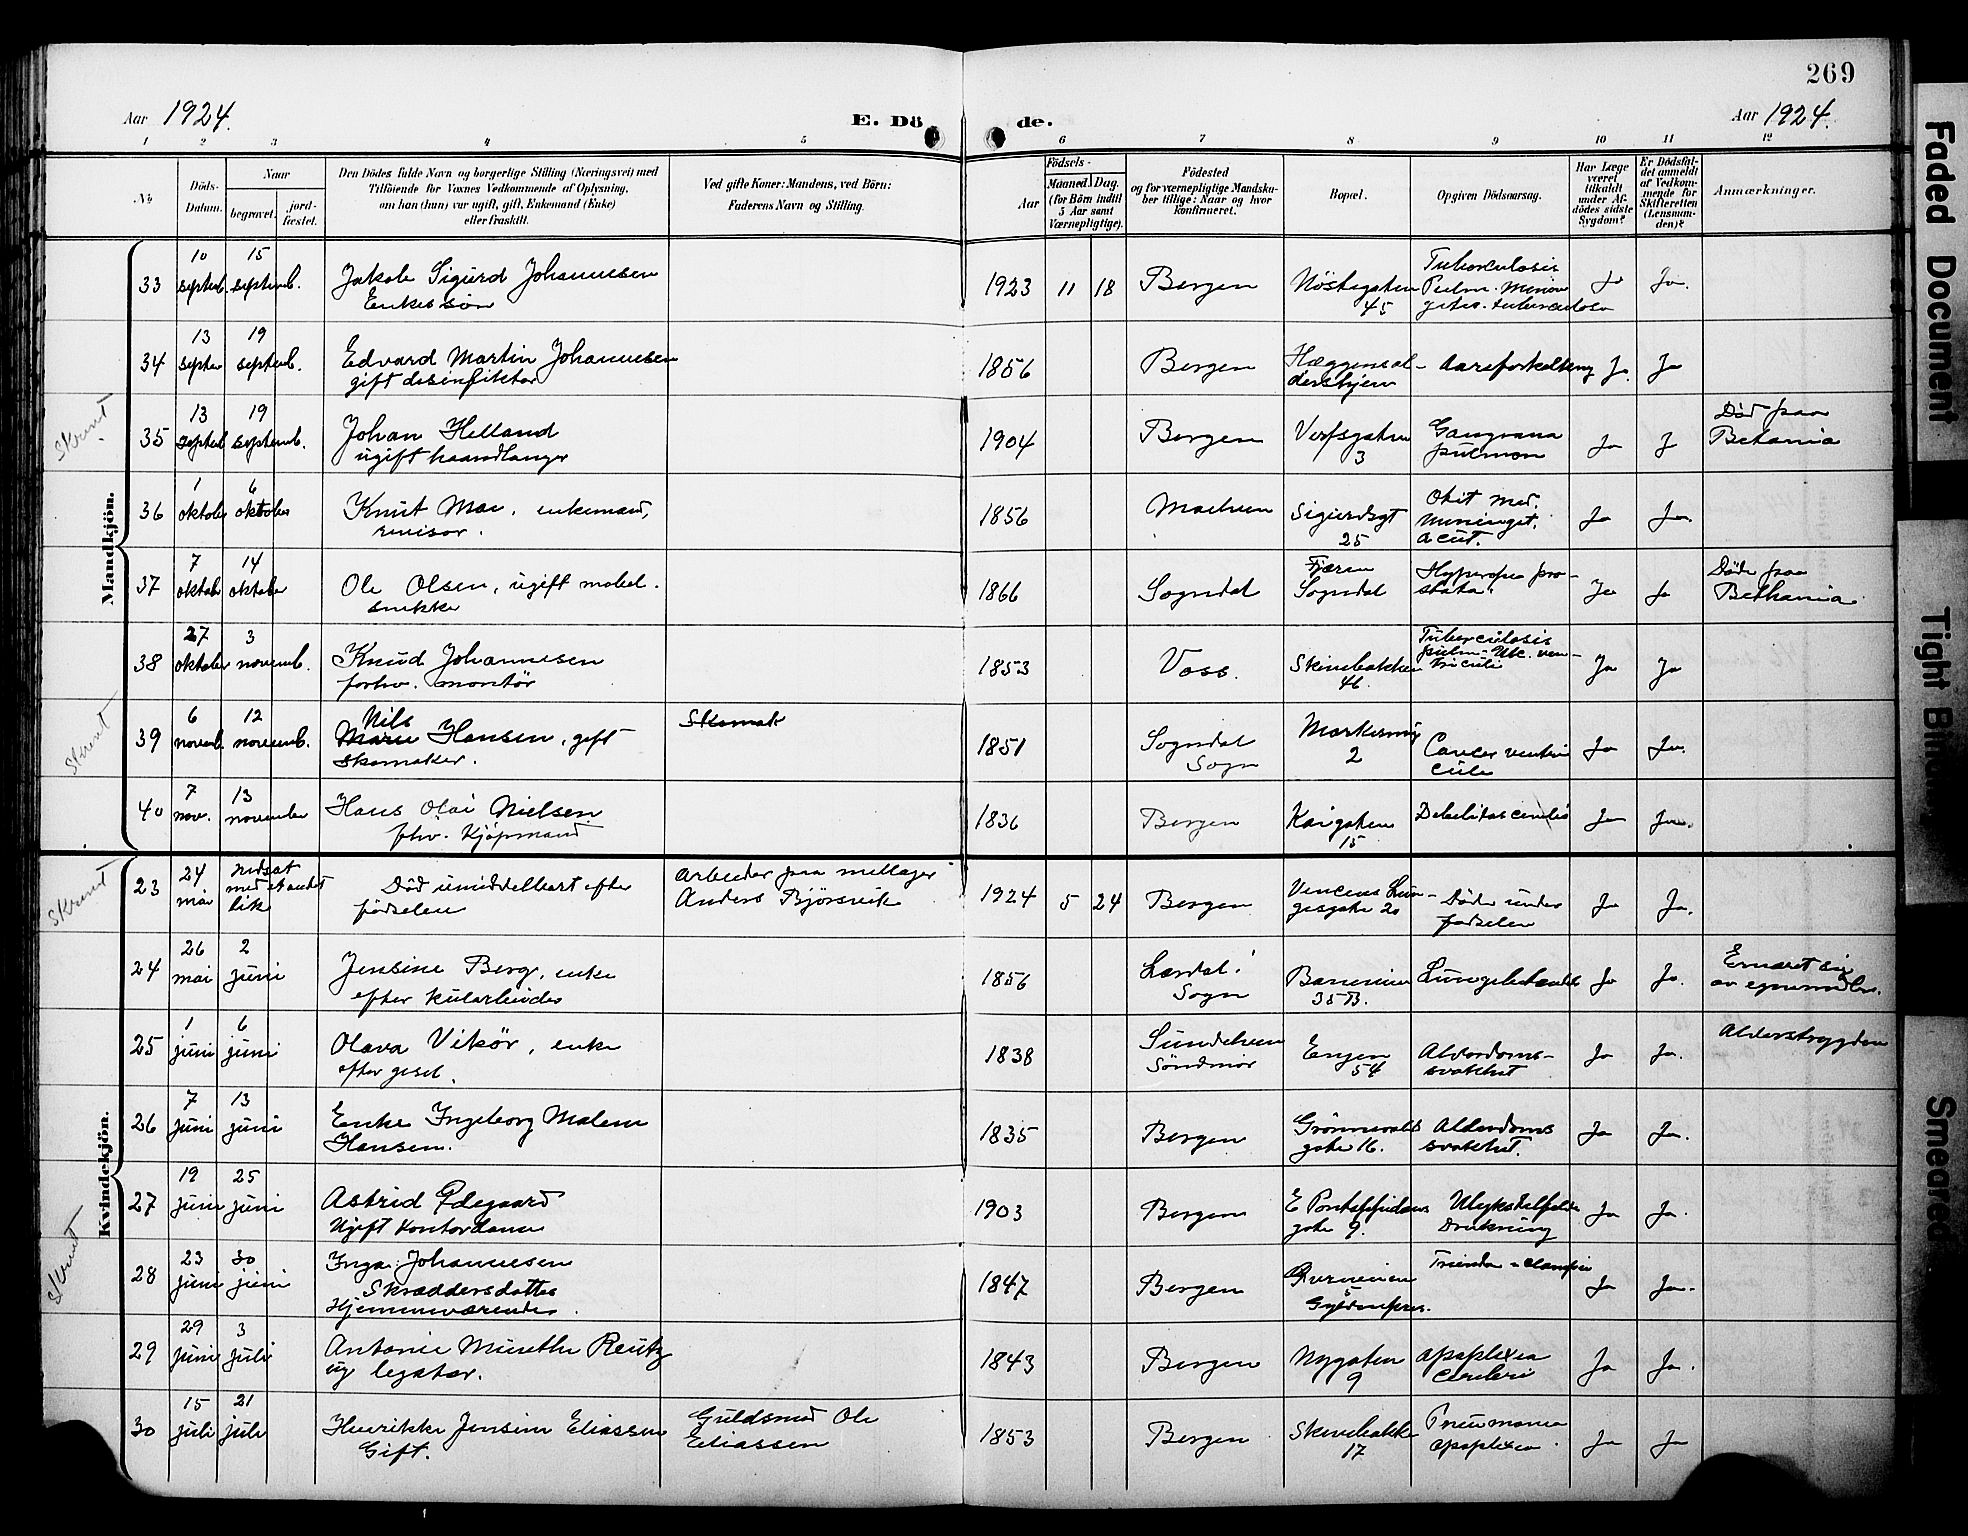 269
Aar 1924.
E. Dö de.
Aar 1924.
1 2 3 4 5 6 7 8 9 10 11 12
№
Döds-Datum.
Naar
begravet.
jordfæstet.
Den Dödes fulde Navn og borgerlige Stilling (Næringsvei) med
Tilföiende for Voxnes Vedkommende af Oplysning,
om han (hun) var ugift, gift, Enkemand (Enke)
eller fraskilt.
Ved gifte Koner: Mandens, ved Börn:
Faderens Navn og Stilling.
Aar
Födsels-
Maaned. Dag.
(for Börn indtil
5 Aar samt
Værnepligtige).
Födested
og for værnepligtige Mandskaber tillige: Naar og hvor
konfirmeret.
Bopæl.
Opgiven Dödsaarsag.
Har Læge
været
tilkaldt
under Afdödes sidste
Sygdom?
Er Dödsfaldet anmeldt
af Vedkommende for
Skifteretten
(Lensmanden)?
Anmærkninger.
Mandkjön.
33 10 septemb. 15 septemb. Jakob Sigurd Johannesen
Enkes søn
1923 11 18 Bergen Nöstegaten 45 Tuberculosis Pulm. Ja Ja.
34 13 septem 19 septemb. Edvard Martin Johannesen
gift desinfiktør
1856 Bergen Aareforkalkning Ja Ja
Skrevet
35 13 septemb 19 septemb. Johan Helland
ugift haandlanger
1904 Bergen Verfsgaten 3 Gangræna pulmon Ja J Død paa Betania
36 1 oktober 6 oktober Knut Moe, enkemand,
revisor.
1856 Sigurdsgt 25 Otit med. acut. Ja Ja.
37 7 oktober 14 oktober Ole Olsen, ugift møbelsnekker
1866 Sogndal Fjæren Sogndal Ja Ja Døde paa Bethania
38 27 oktober 3 novemb. Knud Johannesen
forhv. montör
1853 Voss. Skivebakken 46. Tuberculosis pulm. - Ulc. ventriculi Ja Ja
Skrevet
39 6 novemb. 12 novemb. Nils Hansen, gift
skomaker.
Skomak
1851 Sogndal Sogn Markevei 2 Cancer ventriculi Ja Ja.
40 7 nov. 13 november Hans Olai Nielsen
fhv. Kjöpmand
1836 Bergen Kaigaten 15 Debilitas senilis Ja Ja.
Kvindekjön.
Skrevet
23 24 mai Nedsat med et andet lik Död umiddelbart efter
födselen
Arbeider paa mellager
Anders Bjørsvik
1924 5 24 Bergen Vincens Lungesgate 20 Døde under fødselen Ja Ja.
24 26 mai 2 juni Jensine Berg, enke
efter kularbeider
1856 Lærdal i Sogn 35 B. Lungebetændelse Ja Ja. Ernæret sig av
25 1 juni 6 juni Olava Vikör, enke
efter gesel.
1838 Söndmör Engen 54 Alderdomssvakhet Ja Ja. Alderstrygden
26 7 juni 13 juni Enke Ingeborg Malene
Hansen.
1835 Bergen gate 16. Alderdomssvakhet. Ja Ja.
27 19 juni 25 juni Astrid Ødegaard
Ugift kontordame
1903 Bergen E Pontoppidans gate 9. Ulykkestilfelde Drukning Ja Ja.
Skrevet
28 23 juni 30 juni Inga Johannesen
Skræddersdatter
Hjemmeværende.
1847 Bergen 5 Ja Ja.
29 29 juni 3 juli Antonie Munthe Reutz
ug legatar.
1843 Bergen Nygaten 9 Apoplexia cerebri Ja Ja.
30 15 juli 21 juli Henrikke Jensine Eliassen
Gift.
Guldsmed Ole
Eliassen
1853 Bergen Skivebakken 17 Pneumonia apoplexia. Ja Ja
Faded Document
Tight Bin
Smeared